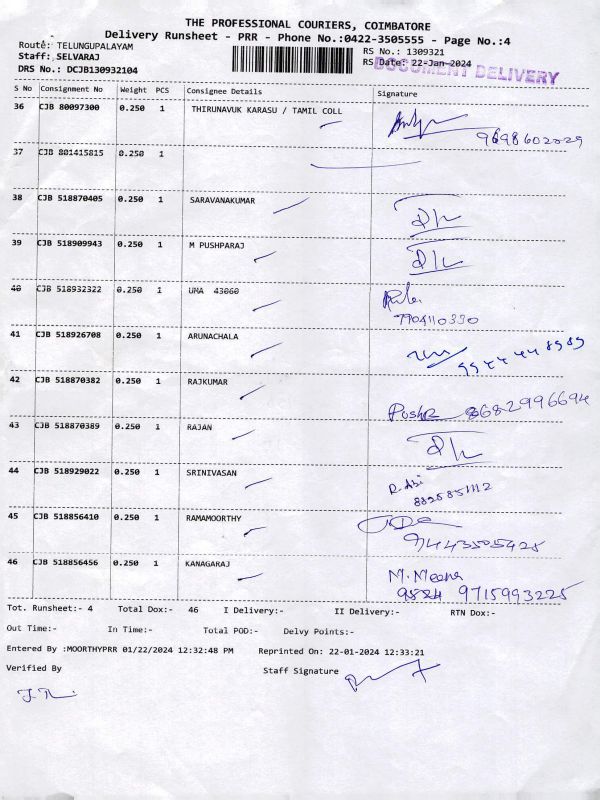 THE PROFESSIONAL COURIERS, COIMBATORE
Delivery Runsheet - PRR - Phone No.:0422-3505555 - Page No.:4
Route: TELUNGUPALAYAM
RS No.: 1309321
Staff: SELVARAJ
RS Date: 22-Jan-2024
DOCUMENT DELIVERY
DRS No.: DCJB130932104
S No Consignment No Weight PCS Consignee Details Signature
36 CJB 80097300 0.250 1 THIRUNAVUK KARASU / TAMIL COLL
9698602029
37 CJB 801415815 0.250 1
38 CJB 518870405 0.250 1 SARAVANAKUMAR
39 CJB 518909943 0.250 1 M PUSHPARAJ
40 CJB 518932322 0.250 1 UMA 43060
7904110330
41 CJB 518926708 0.250 1 ARUNACHALA
9944448989
42 CJB 518870382 0.250 1 RAJKUMAR
8682996694
43 CJB 518870389 0.250 1 RAJAN
44 CJB 518929022 0.250 1 SRINIVASAN
R. Abi
8825851112
45 CJB 518856410 0.250 1 RAMAMOORTHY
9443505425
46 CJB 518856456 0.250 1 KANAGARAJ
M. Meena
9715993225
Tot. Runsheet:- 4 Total Dox:- 46 I Delivery:- II Delivery:- RTN Dox:-
Out Time:- In Time:- Total POD:- Delvy Points:-
Entered By :MOORTHYPRR 01/22/2024 12:32:48 PM Reprinted On: 22-01-2024 12:33:21
Verified By Staff Signature